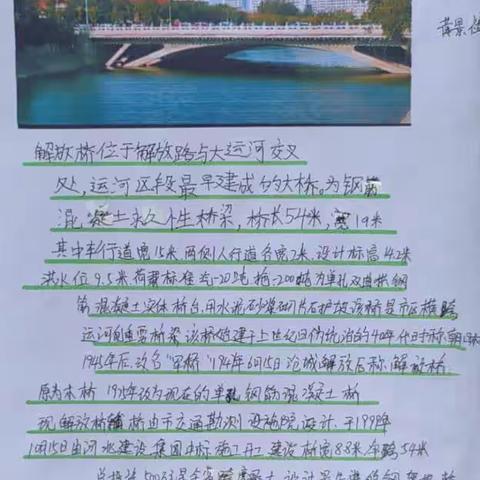 黄景
解放桥位于解放路与大运河交叉
处,运河区段最早建成的大桥。为钢筋
混凝土永久性桥梁,桥长54米,宽19米
其中车行道宽15米两侧人行道各宽2米、设计标高14.2米
洪水位9.5米荷载标准汽-20吨拖-200吨为单孔双曲拱钢
筋混凝土实体桥台用水泥砂浆砌片石护坡该桥是市区横跨
运河重要桥梁该桥始建于上世纪日伪统治的40年代时称朝
1945年后改名"军桥"1947年6月15日沧城解放后称解放桥
原为木桥1975年改为现在的单孔钢筋混凝土桥
现解放桥辅桥由市交通勘测设施院设计、于1999年
10月15日由河北建设集团中标施工开工建设桥宽8.8米净跨54米
总投资500